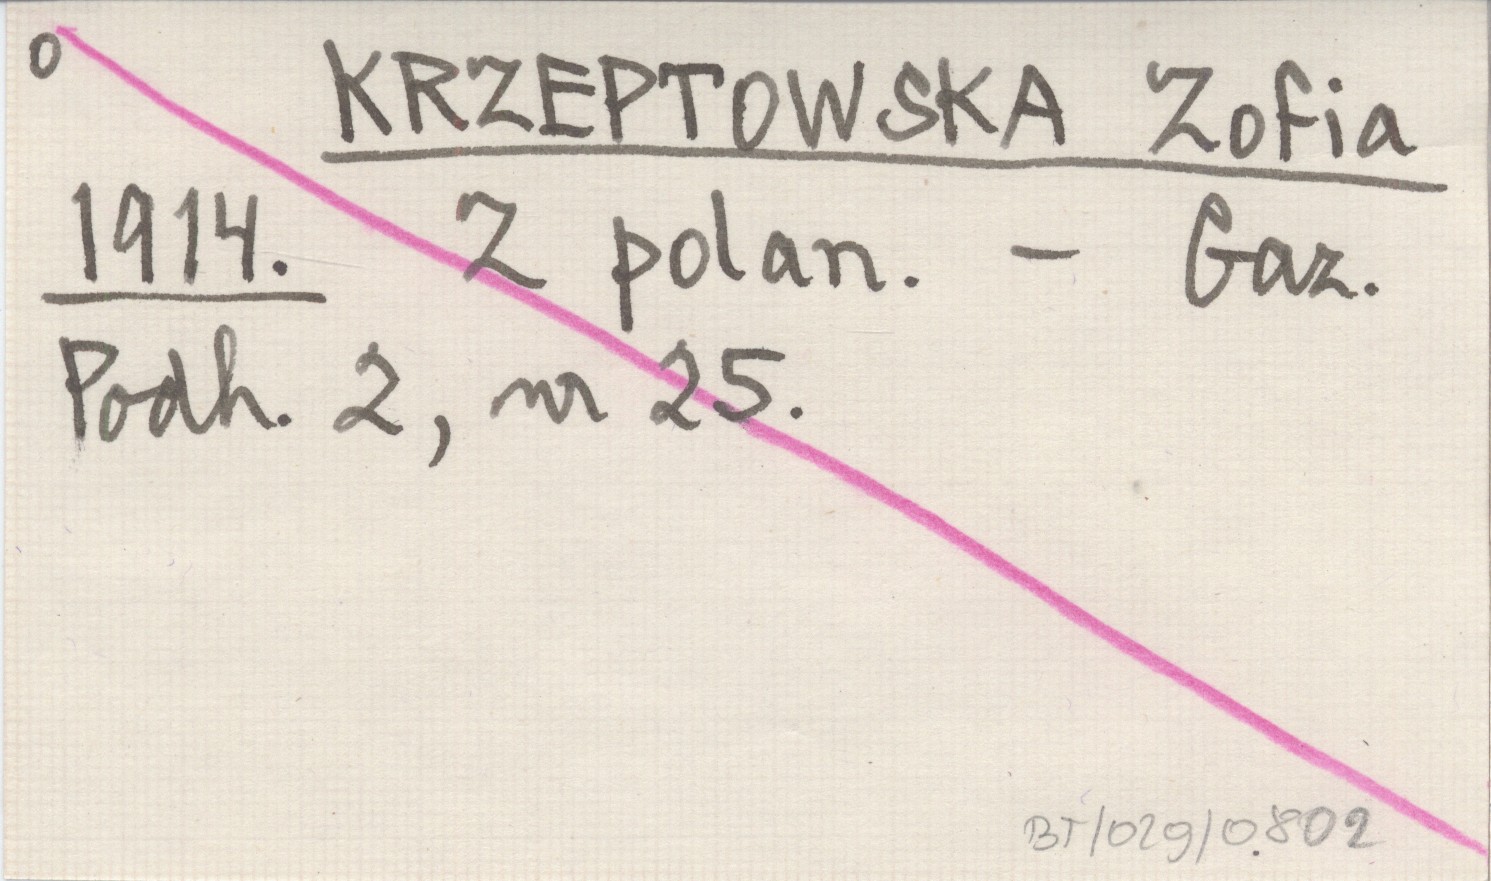 O KRZEPTOWSKA Zofia
1914. Z polan. - Gaz.
Podh. 2, nr 25.
BT/029/0.802